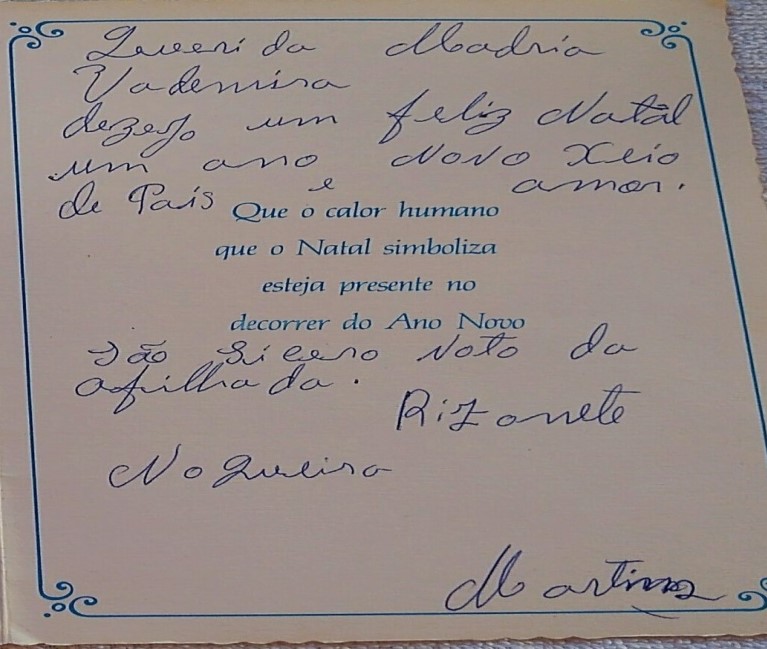 Queerida Madria
Vademira
dezejo um feliz Natal
um ano Novo Xeio
de País e amor.
Que o calor humano
que o Natal simboliza
esteja presente no
decorrer do Ano Novo
São Sicero Voto da
afilhada.
Rizonete
Nogueira
Martins